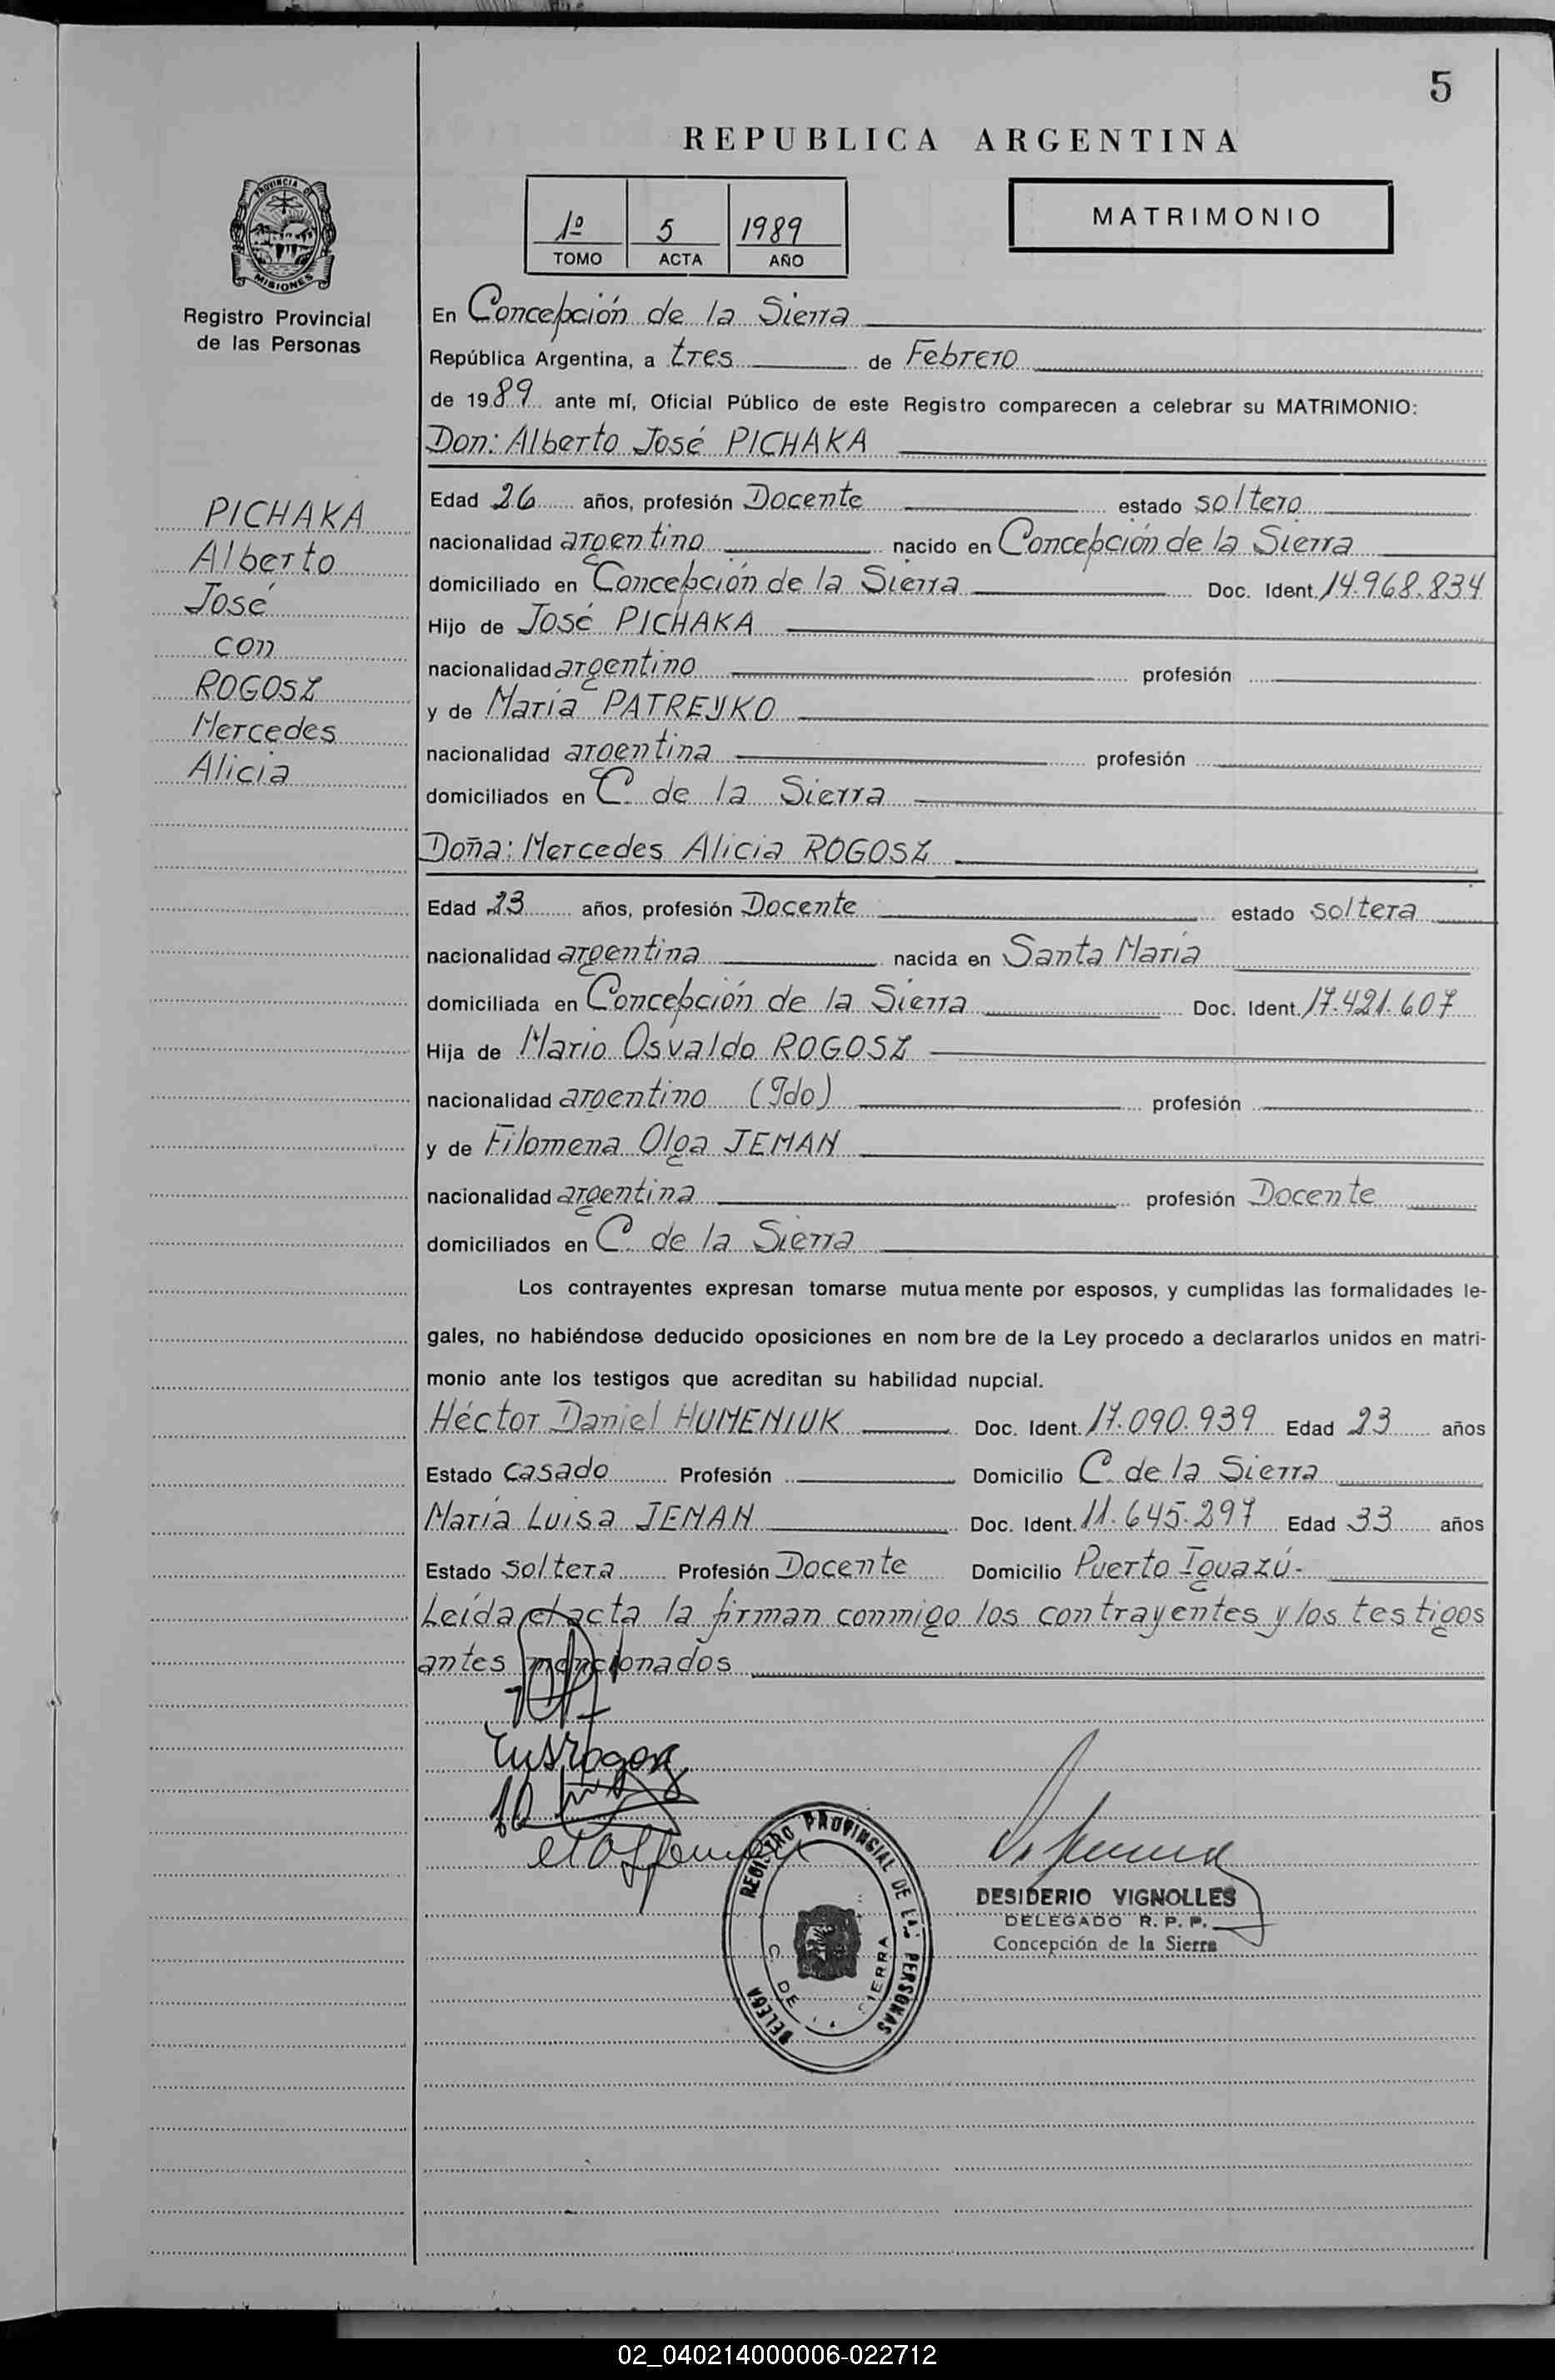 5
REPUBLICA ARGENTINA
PROVINCIA DE
MISIONES
Registro Provincial
de las Personas
1º 5 1989
TOMO ACTA AÑO
MATRIMONIO
En Concepción de la Sierra
República Argentina, a tres de Febrero
de 1989 ante mí, Oficial Público de este Registro comparecen a celebrar su MATRIMONIO:
Don: Alberto José PICHAKA
PICHAKA
Alberto
José
con
ROGOSZ
Mercedes
Alicia
Edad 26 años, profesión Docente estado soltero
nacionalidad argentino nacido en Concepción de la Sierra
domiciliado en Concepción de la Sierra Doc. Ident. 14.968.834
Hijo de José PICHAKA
nacionalidad argentino profesión
y de María PATREYKO
nacionalidad argentina profesión
domiciliados en C. de la Sierra
Doña: Mercedes Alicia ROGOSZ
Edad 23 años, profesión Docente estado soltera
nacionalidad argentina nacida en Santa María
domiciliada en Concepción de la Sierra Doc. Ident. 17.421.607
Hija de Mario Osvaldo ROGOSZ
nacionalidad argentino (Fdo) profesión
y de Filomena Olga JEMAN
nacionalidad argentina profesión Docente
domiciliados en C. de la Sierra
Los contrayentes expresan tomarse mutuamente por esposos, y cumplidas las formalidades le-
gales, no habiéndose deducido oposiciones en nombre de la Ley procedo a declararlos unidos en matri-
monio ante los testigos que acreditan su habilidad nupcial.
Héctor Daniel HUMENIUK Doc. Ident. 17.090.939 Edad 23 años
Estado casado Profesión Domicilio C. de la Sierra
María Luisa JEMAN Doc. Ident. 11.645.297 Edad 33 años
Estado soltera Profesión Docente Domicilio Puerto Iguazú.
Leída el acta la firman conmigo los contrayentes y los testigos
antes mencionados
REGISTRO PROVINCIAL DE LAS PERSONAS
DELEGA
C. DE LA SIERRA
DESIDERIO VIGNOLLES
DELEGADO R. P. P.
Concepción de la Sierra
02_040214000006-022712